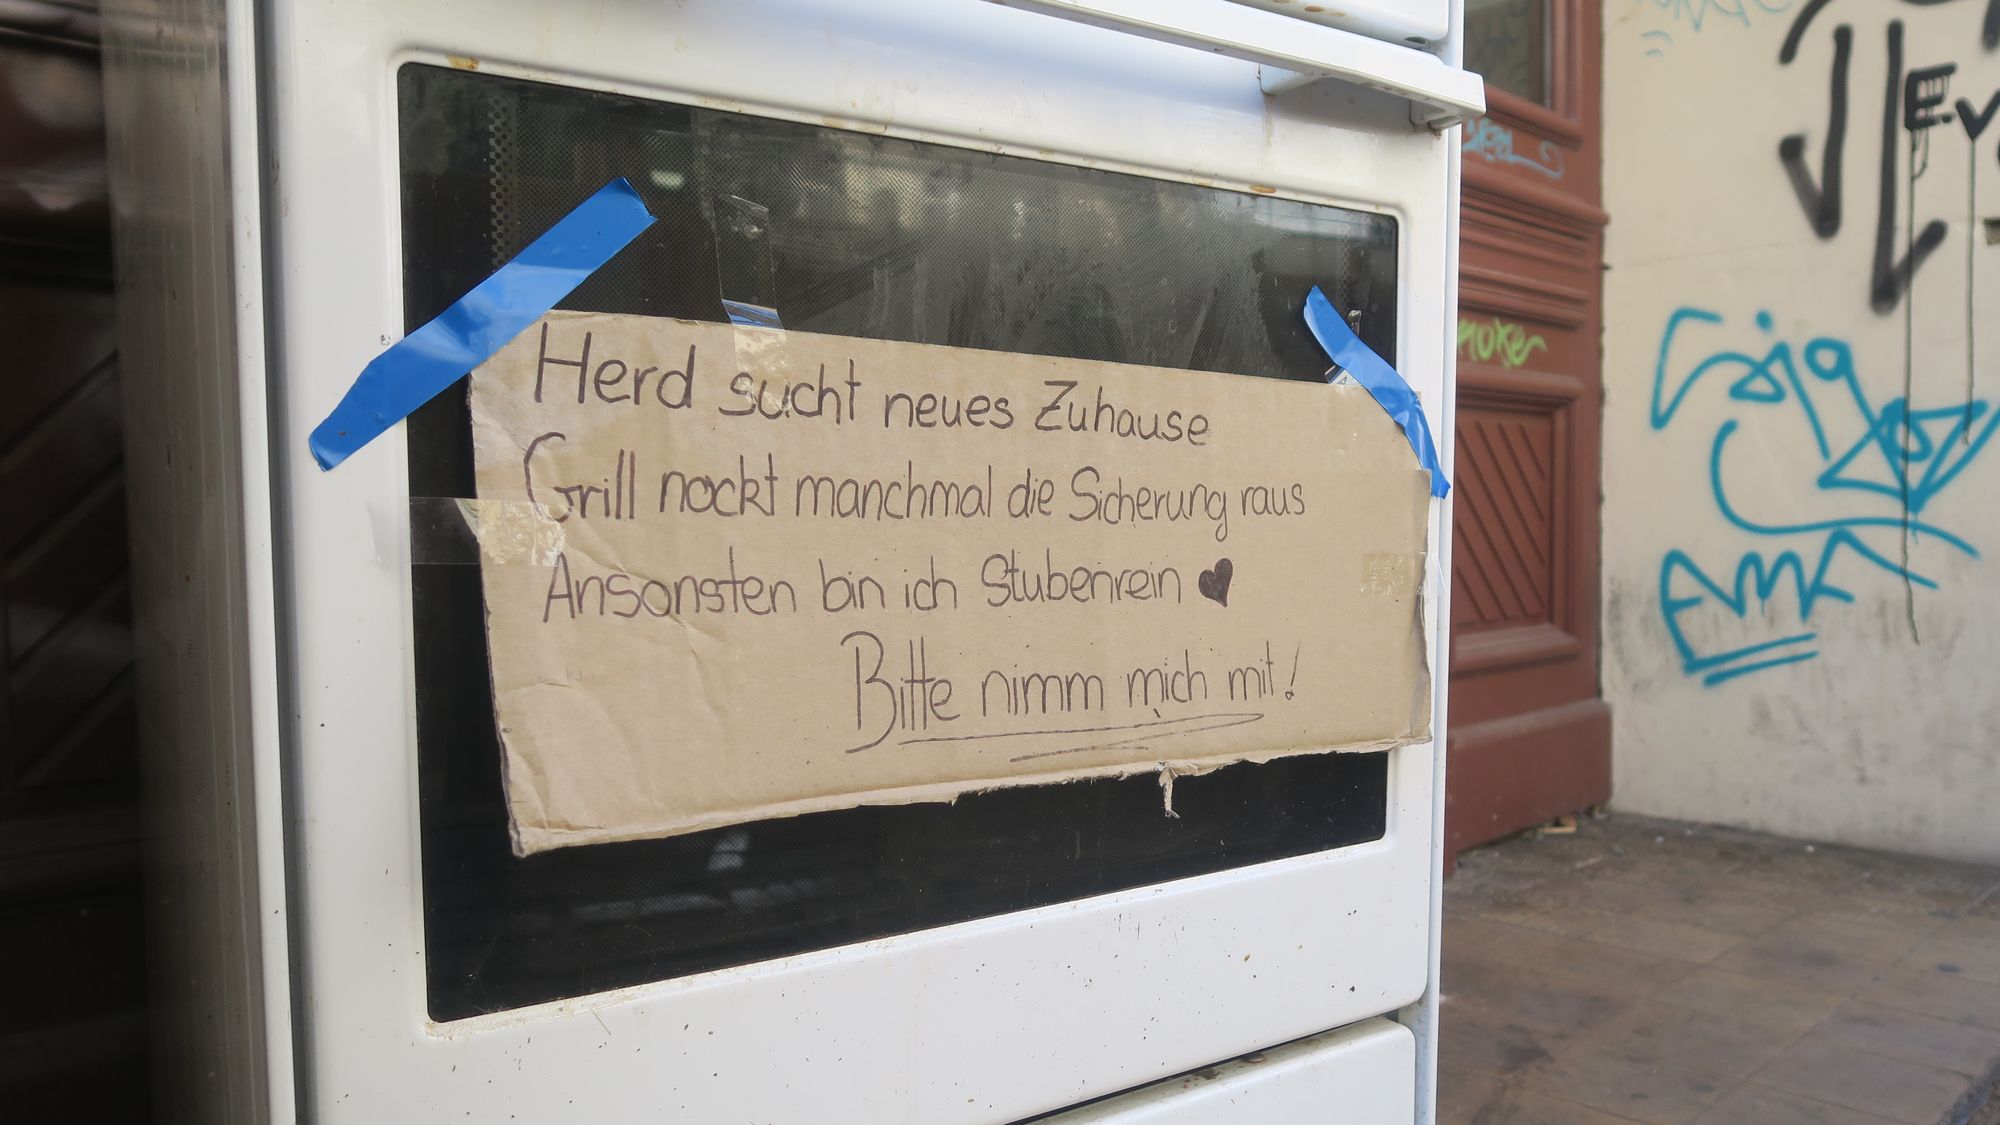 Herd sucht neues Zuhause
Grill nockt manchmal die Sicherung raus
Ansonsten bin ich Stubenrein ♥
Bitte nimm mich mit!